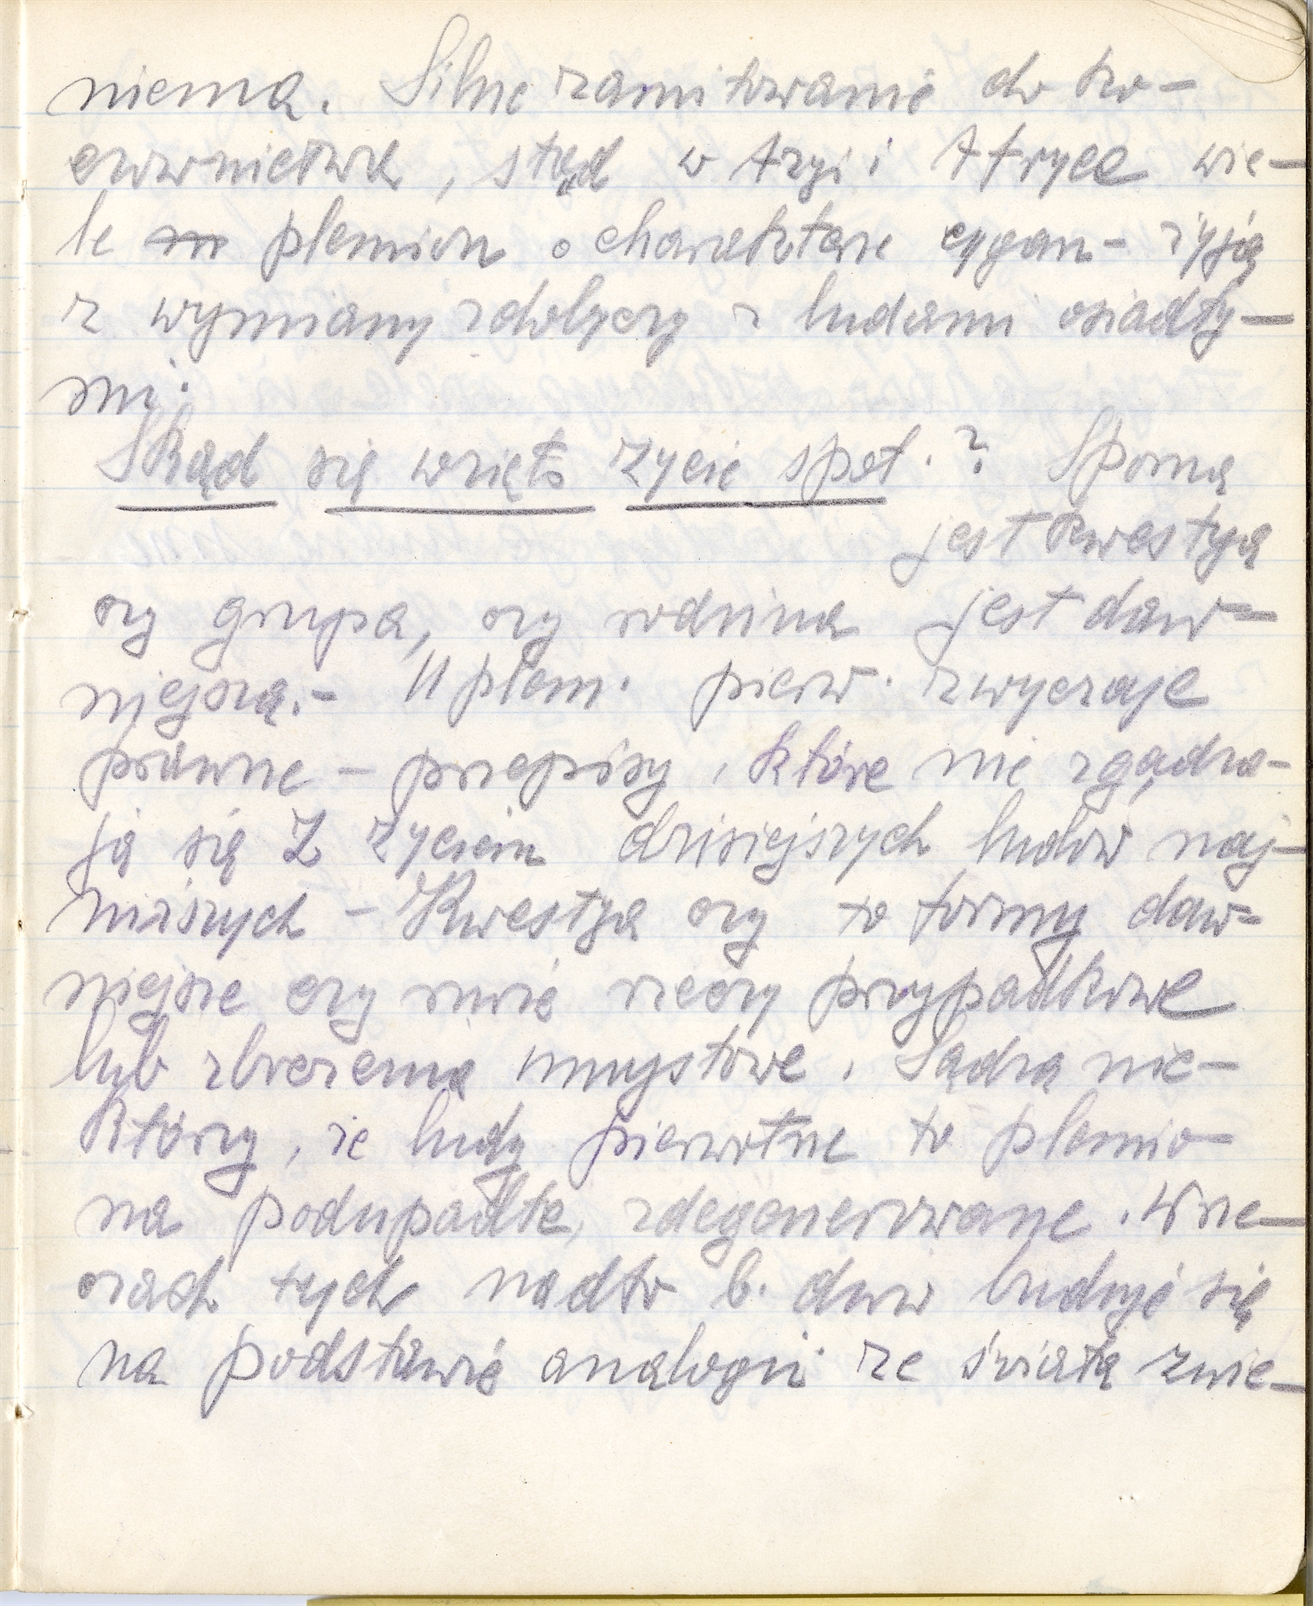 niema. Silne zamiłowanie do ko-
czownictwa, stąd w Azyi i Afryce wie-
le plemion o charakterze cygan- żyją
z wymiany zdobyczy z ludami osiadły-
mi.
Skąd się wzięło życie społ.? Sporną
jest kwestyą
czy grupa, czy rodzina jest daw-
niejszą.- U plem. pierw. zwyczaje
prawne - przepisy, które nie zgadza-
ją się z życiem dzisiejszych ludów naj-
niższych - Kwestya czy to formy daw-
niejsze czy może rzeczy przypadkowe
lub zboczenia umysłowe. Sądzą nie-
którzy, że ludy pierwotne to plemio-
na podupadłe, zdegenerowane. W rze-
czach tych nadto b. daw buduje się
na podstawie analogii ze świata zwie-